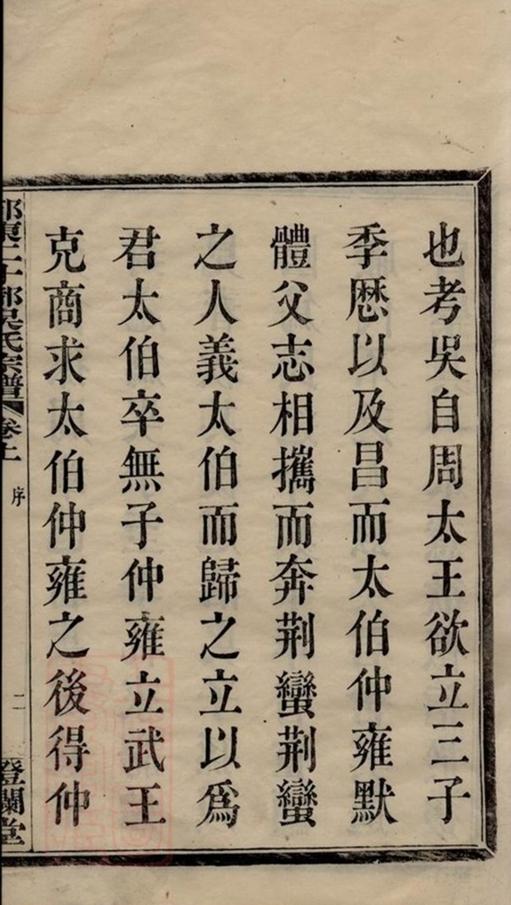 也考吳自周太王欲立三子
季歷以及昌而太伯仲雍默
體父志相攜而奔荆蠻荆蠻
之人義太伯而歸之立以爲
君太伯卒無子仲雍立武王
克商求太伯仲雍之後得仲
吳氏宗譜 卷上 序 二 澄瀾堂